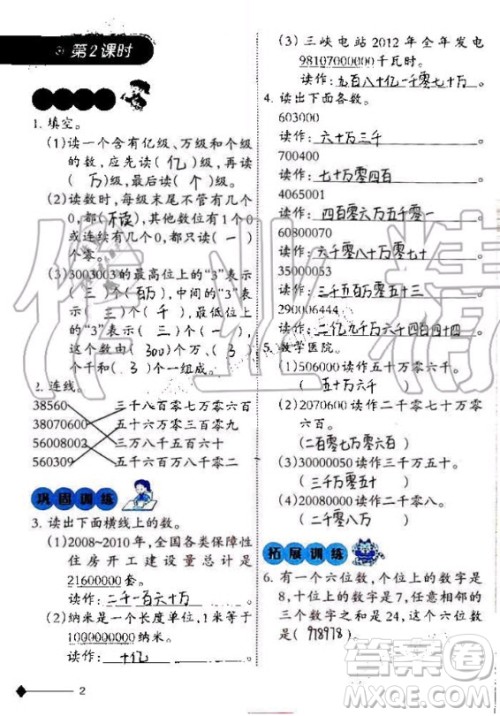 第2课时
1. 填空。
(1)读一个含有亿级、万级和个级
的数,应先读(亿)级,再读
(万)级,最后读(个)级。
(2)读数时,每级末尾不管有几个
0,都(不读),其他数位有1个0
或连续有几个0,都只读(一)
个零。
(3)3003003的最高位上的“3”表示
(三)个(百万),中间的“3”表
示(三)个(千),最低位上
的“3”表示(三)个(一),
这个数由(300)个万和
(3003)个一组成。
2. 连线。
38560 三千八百零七万零六百
38070600 五十六万零三百零九
56008002 三万八千五百六十
560309 五千六百万八千零二
巩固训练
3. 读出下面横线上的数。
(1)2008~2010年,全国各类保障性
住房开工建设量总计是
21600000套。
读作:二千一百六十万
(2)纳米是一个长度单位,1米等于
1000000000纳米。
读作:十亿
(3)三峡电站2012年全年发电
98107000000千瓦时。
读作:九百八十亿一千零七十万
4. 读出下面各数。
603000
读作:六十万三千
700400
读作:七十万零四百
4065001
读作:四百零六万五千零一
35000053
读作:三千五百万零五十三
209004044
读作:二亿九百万四千零四十四
5. 数学医院。
(1)506000读作五十万六十。
(五十万六千)
(2)2070600读作二千零七万零
六百。
(二百零七万零六百)
(3)30000050读作三千万五十。
(三千万零五十)
(4)20080000读作二千万八万。
(二千零八万)
拓展训练
6. 有一个六位数,个位上的数字是
8,十位上的数字是7,任意相邻的
三个数字之和是24,这个六位数
是(978978)。
2
作业精
答案圈
MXQE.COM